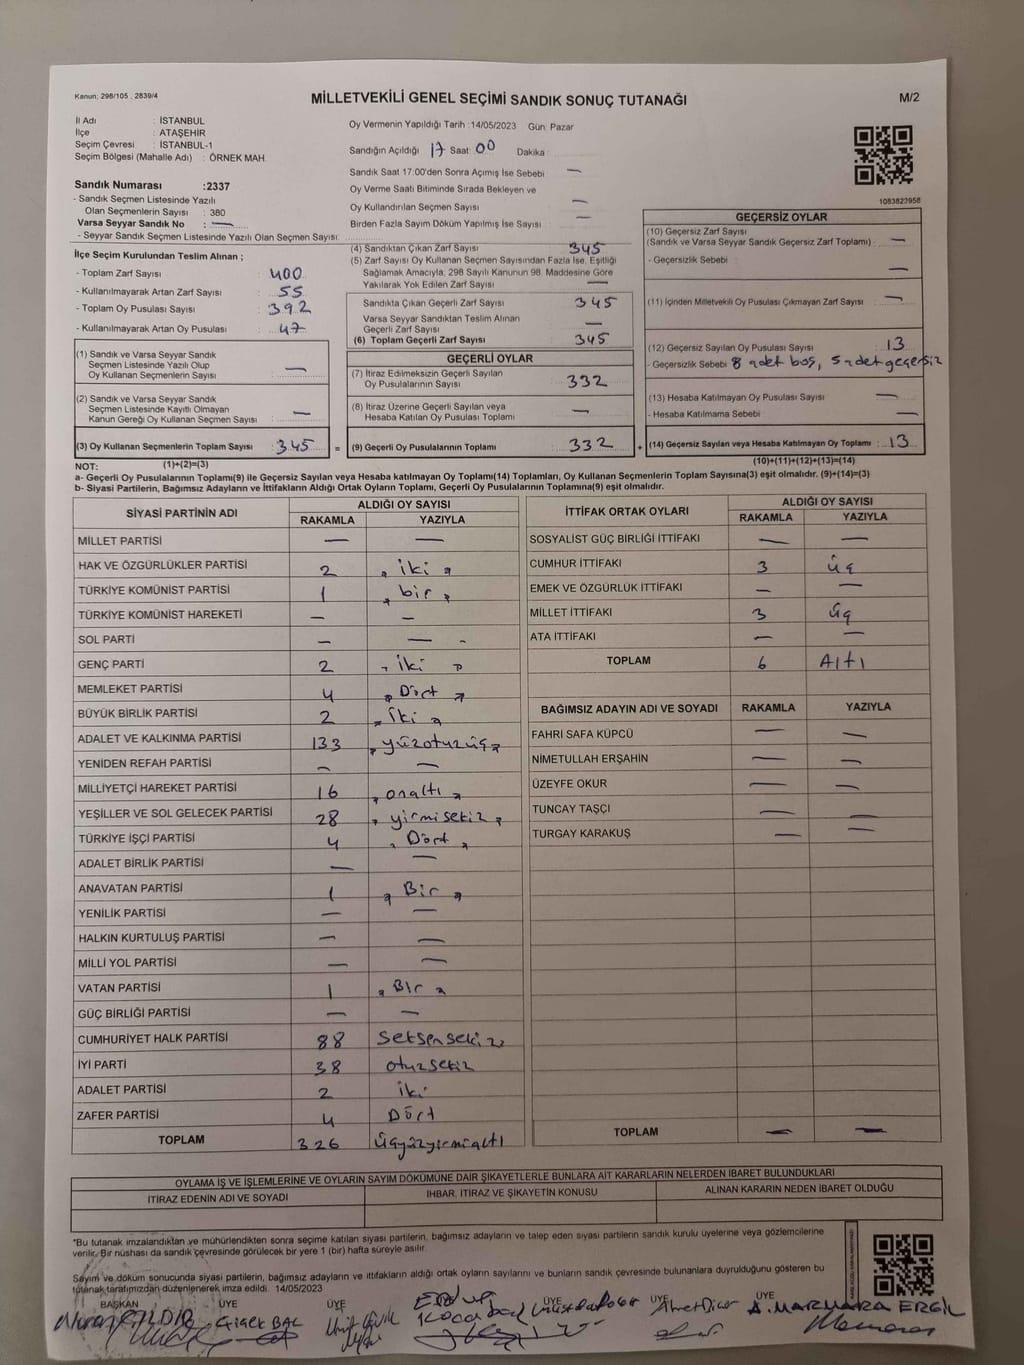 Kanun; 298/105 , 2839/4
MİLLETVEKİLİ GENEL SEÇİMİ SANDIK SONUÇ TUTANAĞI
M/2
İl Adı : İSTANBUL
İlçe : ATAŞEHİR
Seçim Çevresi : İSTANBUL-1
Seçim Bölgesi (Mahalle Adı) : ÖRNEK MAH.
Oy Vermenin Yapıldığı Tarih :14/05/2023 Gün: Pazar
Sandığın Açıldığı 17 Saat 00 Dakika
Sandık Saat 17:00'den Sonra Açımış İse Sebebi —
Oy Verme Saati Bitiminde Sırada Bekleyen ve
Oy Kullandırılan Seçmen Sayısı —
Birden Fazla Sayım Döküm Yapılmış İse Sayısı —
1083823958
Sandık Numarası :2337
- Sandık Seçmen Listesinde Yazılı
Olan Seçmenlerin Sayısı : 380
Varsa Seyyar Sandık No : —
- Seyyar Sandık Seçmen Listesinde Yazılı Olan Seçmen Sayısı:
İlçe Seçim Kurulundan Teslim Alınan ;
- Toplam Zarf Sayısı : 400
- Kullanılmayarak Artan Zarf Sayısı : 55
- Toplam Oy Pusulası Sayısı : 392
- Kullanılmayarak Artan Oy Pusulası : 47
(1) Sandık ve Varsa Seyyar Sandık
Seçmen Listesinde Yazılı Olup
Oy Kullanan Seçmenlerin Sayısı : —
(2) Sandık ve Varsa Seyyar Sandık
Seçmen Listesinde Kayıtlı Olmayan
Kanun Gereği Oy Kullanan Seçmen Sayısı : —
(3) Oy Kullanan Seçmenlerin Toplam Sayısı : 345
(1)+(2)=(3)
(4) Sandıktan Çıkan Zarf Sayısı 345
(5) Zarf Sayısı Oy Kullanan Seçmen Sayısından Fazla İse, Eşitliği
Sağlamak Amacıyla; 298 Sayılı Kanunun 98. Maddesine Göre
Yakılarak Yok Edilen Zarf Sayısı —
Sandıkta Çıkan Geçerli Zarf Sayısı 345
Varsa Seyyar Sandıktan Teslim Alınan
Geçerli Zarf Sayısı —
(6) Toplam Geçerli Zarf Sayısı 345
GEÇERLİ OYLAR
(7) İtiraz Edilmeksizin Geçerli Sayılan
Oy Pusulalarının Sayısı 332
(8) İtiraz Üzerine Geçerli Sayılan veya
Hesaba Katılan Oy Pusulası Toplamı —
= (9) Geçerli Oy Pusulalarının Toplamı 332
GEÇERSİZ OYLAR
(10) Geçersiz Zarf Sayısı
(Sandık ve Varsa Seyyar Sandık Geçersiz Zarf Toplamı) : —
- Geçersizlik Sebebi : —
(11) İçinden Milletvekili Oy Pusulası Çıkmayan Zarf Sayısı : —
(12) Geçersiz Sayılan Oy Pusulası Sayısı : 13
- Geçersizlik Sebebi 8 adet boş, 5 adet geçersiz
(13) Hesaba Katılmayan Oy Pusulası Sayısı : —
- Hesaba Katılmama Sebebi : —
+ (14) Geçersiz Sayılan veya Hesaba Katılmayan Oy Toplamı : 13
(10)+(11)+(12)+(13)=(14)
NOT:
a- Geçerli Oy Pusulalarının Toplamı(9) ile Geçersiz Sayılan veya Hesaba katılmayan Oy Toplamı(14) Toplamları, Oy Kullanan Seçmenlerin Toplam Sayısına(3) eşit olmalıdır. (9)+(14)=(3)
b- Siyasi Partilerin, Bağımsız Adayların ve İttifakların Aldığı Ortak Oyların Toplamı, Geçerli Oy Pusulalarının Toplamına(9) eşit olmalıdır.
SİYASİ PARTİNİN ADI ALDIĞI OY SAYISI
RAKAMLA YAZIYLA
MİLLET PARTİSİ — —
HAK VE ÖZGÜRLÜKLER PARTİSİ 2 "iki"
TÜRKİYE KOMÜNİST PARTİSİ 1 "bir"
TÜRKİYE KOMÜNİST HAREKETİ — —
SOL PARTİ — —
GENÇ PARTİ 2 "iki"
MEMLEKET PARTİSİ 4 "Dört"
BÜYÜK BİRLİK PARTİSİ 2 "iki"
ADALET VE KALKINMA PARTİSİ 133 "yüzotuzüç"
YENİDEN REFAH PARTİSİ — —
MİLLİYETÇİ HAREKET PARTİSİ 16 "onaltı"
YEŞİLLER VE SOL GELECEK PARTİSİ 28 "yirmisekiz"
TÜRKİYE İŞÇİ PARTİSİ 4 "Dört"
ADALET BİRLİK PARTİSİ — —
ANAVATAN PARTİSİ 1 "Bir"
YENİLİK PARTİSİ — —
HALKIN KURTULUŞ PARTİSİ — —
MİLLİ YOL PARTİSİ — —
VATAN PARTİSİ 1 "Bir"
GÜÇ BİRLİĞİ PARTİSİ — —
CUMHURİYET HALK PARTİSİ 88 seksensekiz
İYİ PARTİ 38 otuzsekiz
ADALET PARTİSİ 2 iki
ZAFER PARTİSİ 4 Dört
TOPLAM 326 üçyüzyirmialtı
İTTİFAK ORTAK OYLARI ALDIĞI OY SAYISI
RAKAMLA YAZIYLA
SOSYALİST GÜÇ BİRLİĞİ İTTİFAKI — —
CUMHUR İTTİFAKI 3 üç
EMEK VE ÖZGÜRLÜK İTTİFAKI — —
MİLLET İTTİFAKI 3 üç
ATA İTTİFAKI — —
TOPLAM 6 Altı
BAĞIMSIZ ADAYIN ADI VE SOYADI RAKAMLA YAZIYLA
FAHRİ SAFA KÜPCÜ — —
NİMETULLAH ERŞAHİN — —
ÜZEYFE OKUR — —
TUNCAY TAŞÇI — —
TURGAY KARAKUŞ — —
TOPLAM — —
OYLAMA İŞ VE İŞLEMLERİNE VE OYLARIN SAYIM DÖKÜMÜNE DAİR ŞİKAYETLERLE BUNLARA AİT KARARLARIN NELERDEN İBARET BULUNDUKLARI
İTİRAZ EDENİN ADI VE SOYADI İHBAR, İTİRAZ VE ŞİKAYETİN KONUSU ALINAN KARARIN NEDEN İBARET OLDUĞU
*Bu tutanak imzalandıktan ve mühürlendikten sonra seçime katılan siyasi partilerin, bağımsız adayların ve talep eden siyasi partilerin sandık kurulu üyelerine veya gözlemcilerine
verilir. Bir nüshası da sandık çevresinde görülecek bir yere 1 (bir) hafta süreyle asılır.
Sayım ve döküm sonucunda siyasi partilerin, bağımsız adayların ve ittifakların aldığı ortak oyların sayılarını ve bunların sandık çevresinde bulunanlara duyrulduğunu gösteren bu
tutanak tarafımızdan düzenlenerek imza edildi. 14/05/2023
BAŞKAN ÜYE ÜYE ÜYE ÜYE ÜYE
Çiçek BAL Ahmet Dicer A. MARMARA ERGİL